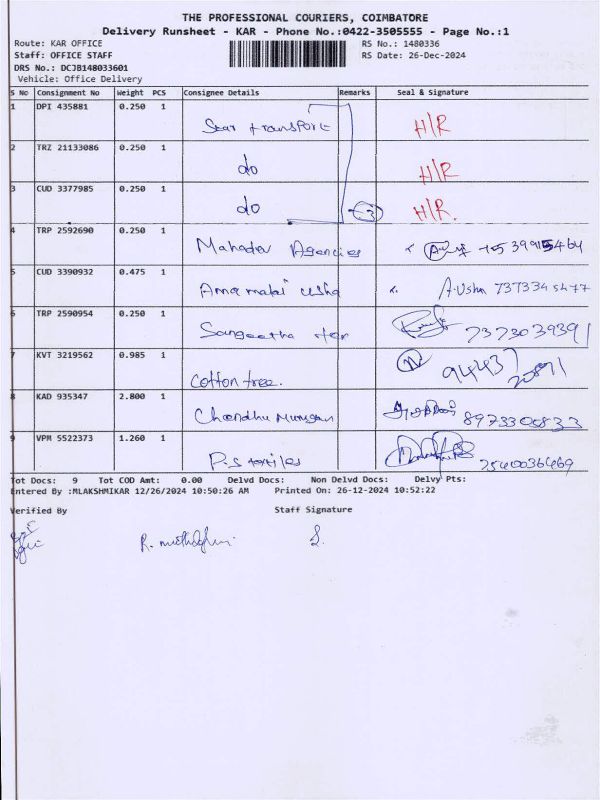 THE PROFESSIONAL COURIERS, COIMBATORE
Delivery Runsheet - KAR - Phone No.:0422-3505555 - Page No.:1
Route: KAR OFFICE RS No.: 1480336
Staff: OFFICE STAFF RS Date: 26-Dec-2024
DRS No.: DCJB148033601
Vehicle: Office Delivery
S No Consignment No Weight PCS Consignee Details Remarks Seal & Signature
1 DPI 435881 0.250 1 Star transport H/R
2 TRZ 21133086 0.250 1 do H/R
3 CUD 3377985 0.250 1 do H/R.
4 TRP 2592690 0.250 1 Mahadev Agencies
5 CUD 3390932 0.475 1 Annamalai usha A.Usha 7373345477
6 TRP 2590954 0.250 1 Sangeetha 7373039391
7 KVT 3219562 0.985 1 Cotton tree. 94437 20891
8 KAD 935347 2.800 1 Chandhu Murugan 8973300833
9 VPM 5522373 1.260 1 R.S textiles
Tot Docs: 9 Tot COD Amt: 0.00 Delvd Docs: Non Delvd Docs: Delvy Pts:
Entered By :MLAKSHMIKAR 12/26/2024 10:50:26 AM Printed On: 26-12-2024 10:52:22
Verified By Staff Signature